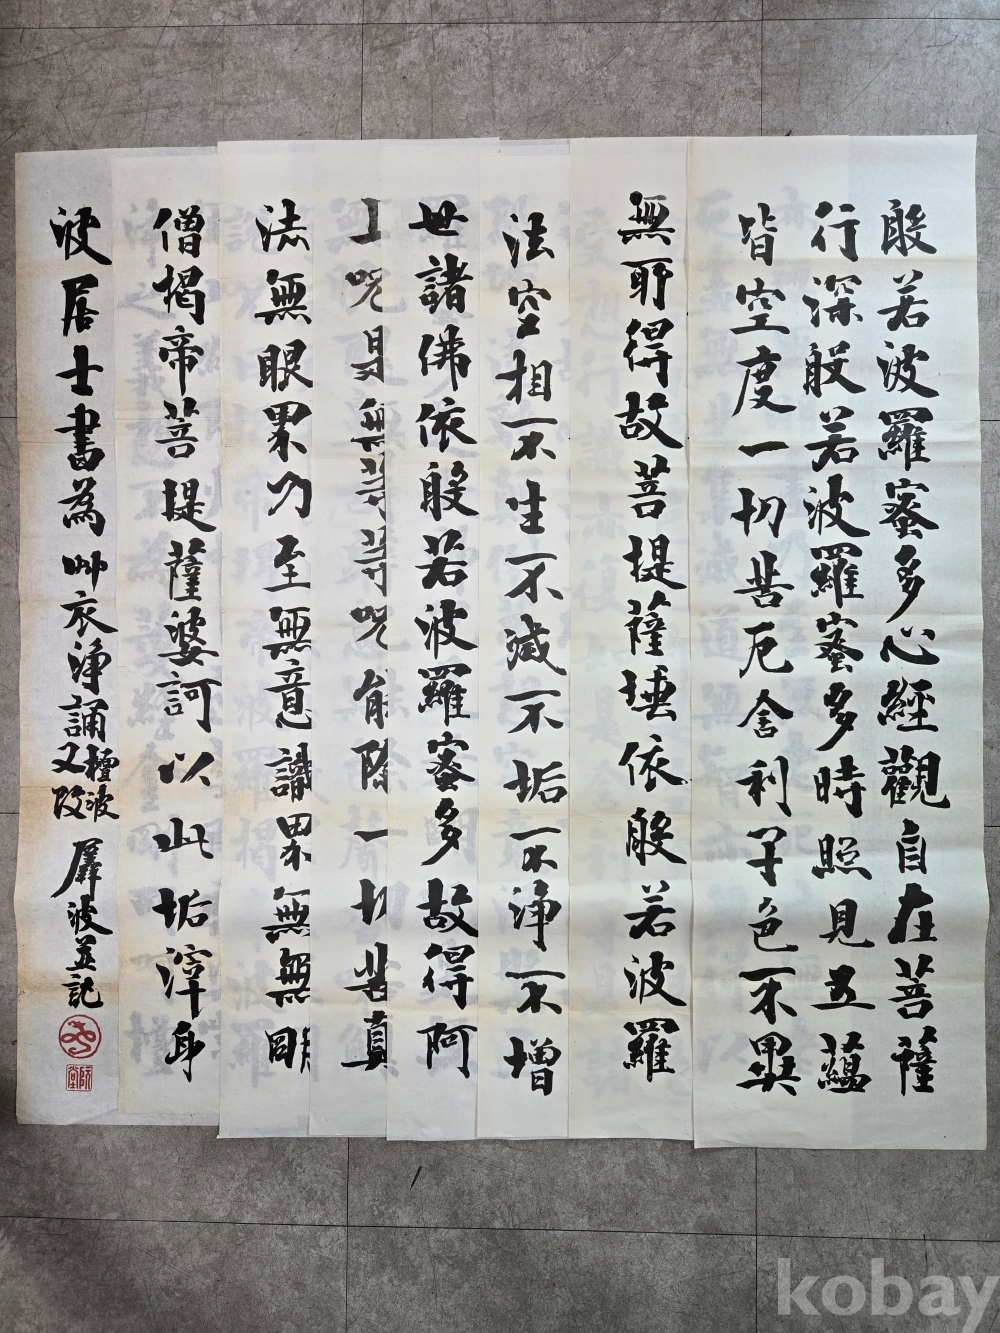 般若波羅蜜多心經觀自在菩薩
行深般若波羅蜜多時照見五蘊
皆空度一切苦厄舍利子色不異
無所得故菩提薩埵依般若波羅
法空相不生不滅不垢不淨不增
世諸佛依般若波羅蜜多故得阿
上咒是無等等咒能除一切苦真
法無眼界乃至無意識界無無明
僧揭帝菩提薩婆訶以此垢滓身
波居士書為艸衣淨誦檀波
又改
屏波並記
kobay